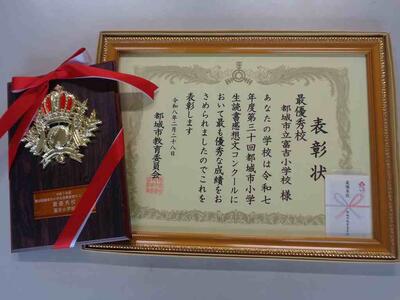 表彰状
最優秀校
都城市立富吉小学校 様
あなたの学校は令和七
年度第三十回都城市小学
生読書感想文コンクールに
おいて最も優秀な成績をお
さめられましたのでこれを
表彰します
令和八年二月二十八日
都城市教育委員会
最優秀校